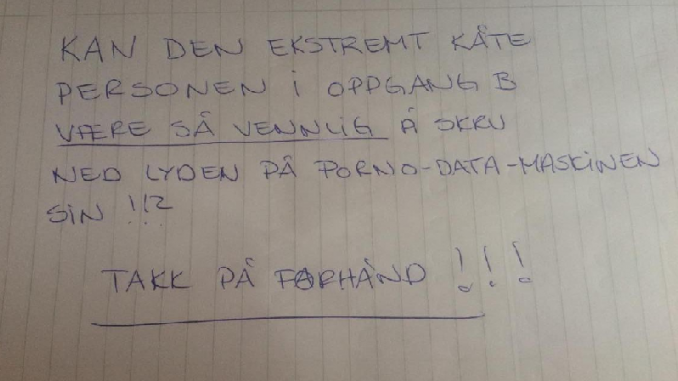 KAN DEN EKSTREMT KÅTE
PERSONEN I OPPGANG B
VÆRE SÅ VENNLIG Å SKRU
NED LYDEN PÅ PORNO-DATA-MASKINEN
SIN !!?
TAKK PÅ FORHÅND !!!